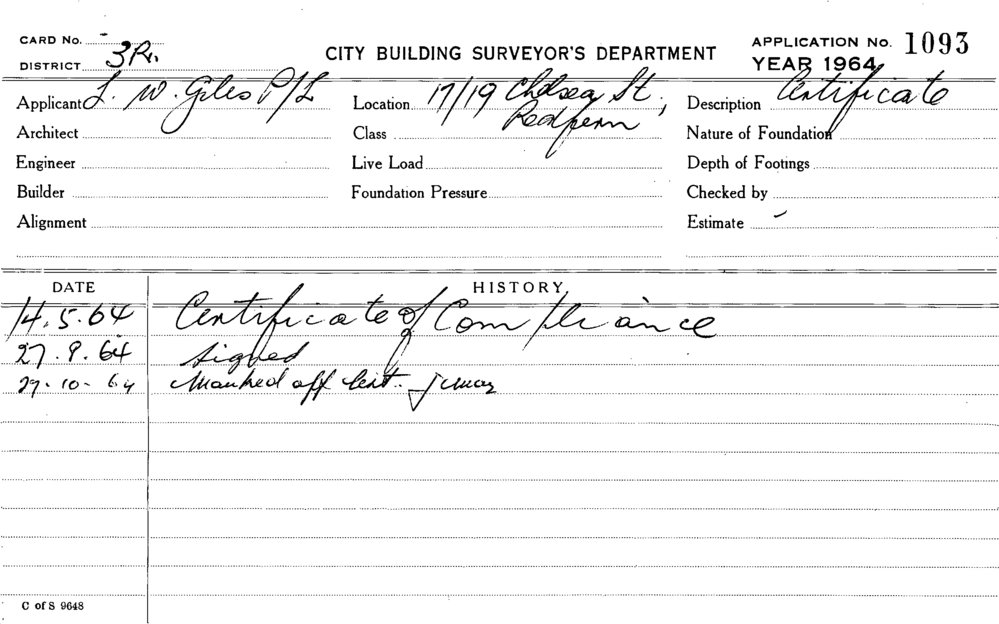 CARD No. -
DISTRICT 3R.
CITY BUILDING SURVEYOR'S DEPARTMENT
APPLICATION No. 1093
YEAR 1964
Applicant L. W. Giles P/L
Location 17/19 Chelsea St.,
Redfern
Description Certificate
Architect
Class
Nature of Foundation
Engineer
Live Load
Depth of Footings
Builder
Foundation Pressure
Checked by
Alignment
Estimate -
DATE HISTORY
14.5.64 Certificate of Compliance
27.9.64 signed
29-10-64 Marked off list.
C of S 9648